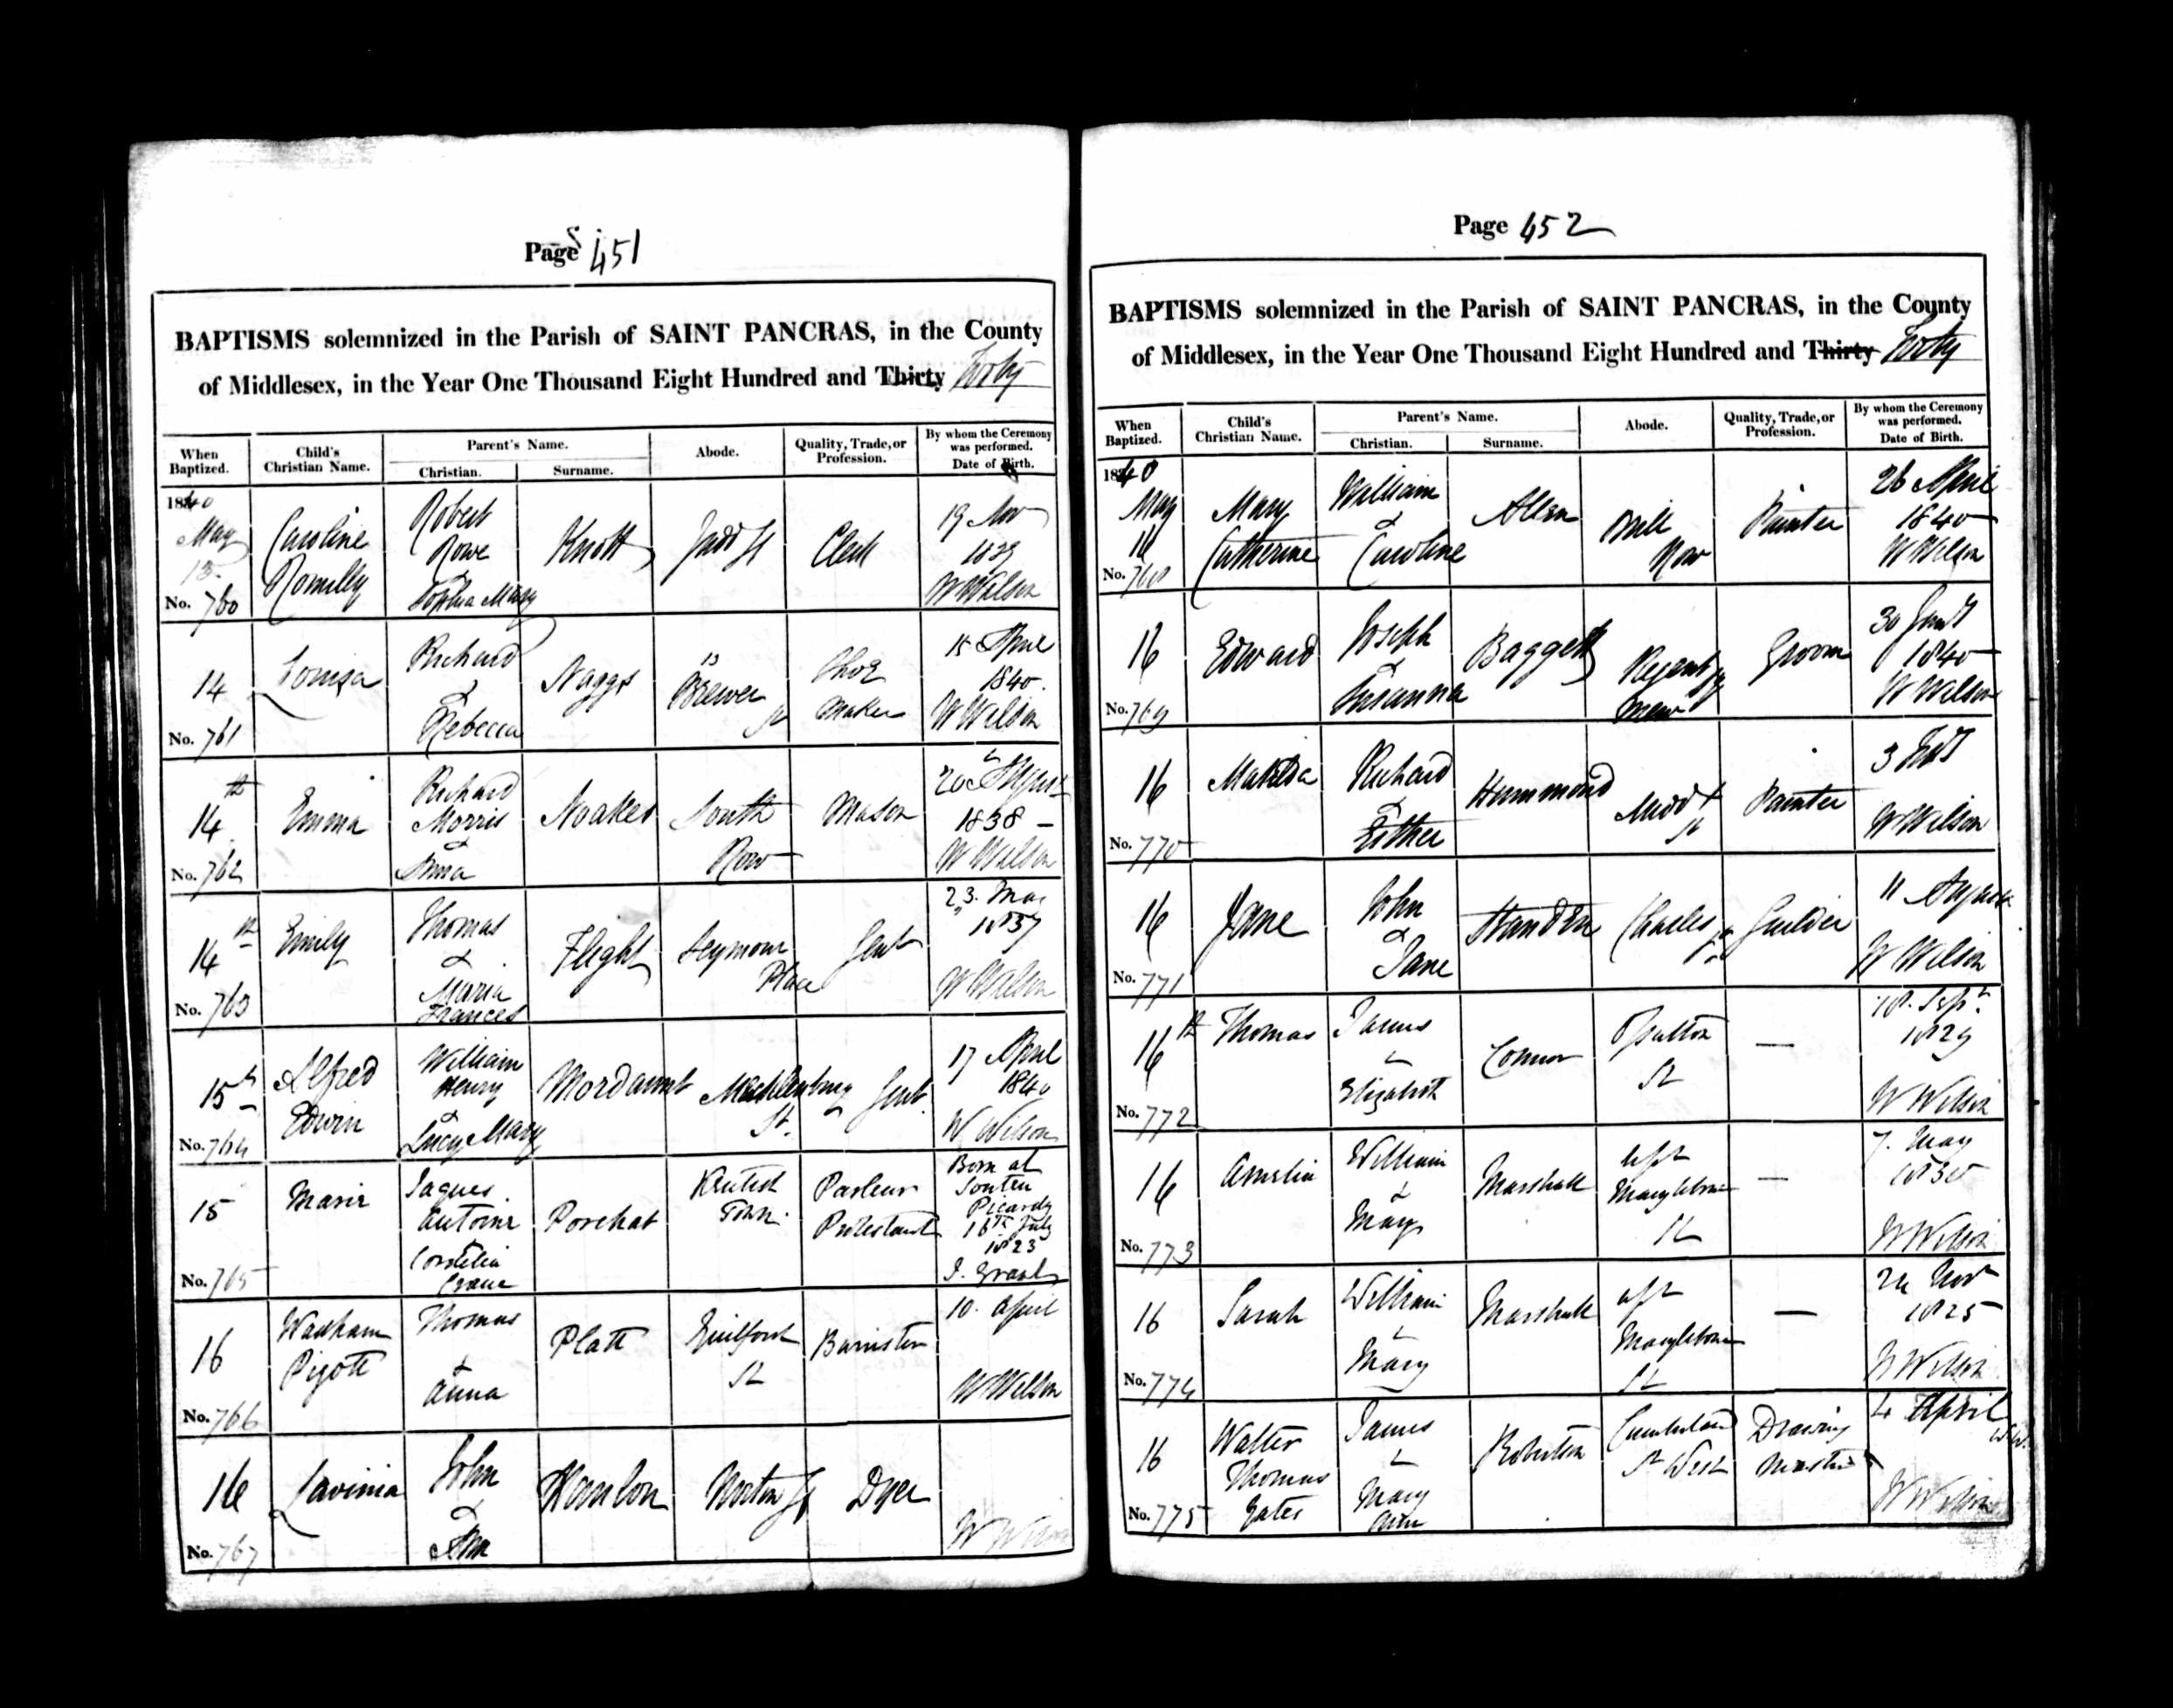 Page 451
BAPTISMS solemnized in the Parish of SAINT PANCRAS, in the County
of Middlesex, in the Year One Thousand Eight Hundred and Thirty Forty
When Baptized.
Child's Christian Name.
Parent's Name.
Christian.
Surname.
Abode.
Quality, Trade, or Profession.
By whom the Ceremony was performed.
Date of Birth.
1840
May
13
No. 760
Caroline
Romilly
Robert
Rowe
&
Sophia Mary
Knott
Judd St
Clerk
19 Nov
1839
W Wilson
14
No. 761
Louisa
Richard
&
Rebecca
Naggs
13
Brewer
St
Shoe
Maker
15 April
1840
W Wilson
14th
No. 762
Emma
Richard
Morris
&
Anna
Noakes
South
Row
Mason
20 August
1838
W Wilson
14th
No. 763
Emily
Thomas
&
Maria
Frances
Flight
Seymour
Place
Gent
23. May
1837
W Wilson
15th
No. 764
Alfred
Edwin
William
Henry
&
Lucy Mary
Mordaunt
Mecklenburg
St.
Gent.
17 April
1840
W Wilson
15
No. 765
Marie
Jaques
Antoine
Cordelia
Porchat
Kentish
Town.
Pasteur
Protestant
Born at
Picardy
16th July
1823
J. Grant
16
No. 766
Pigott
Thomas
&
Anna
Platt
Guilford
St
Barrister
10. April
W Wilson
16
No. 767
Lavinia
John
&
Ann
Norton St
Dyer
W Wilson
Page 452
BAPTISMS solemnized in the Parish of SAINT PANCRAS, in the County
of Middlesex, in the Year One Thousand Eight Hundred and Thirty Forty
When Baptized.
Child's Christian Name.
Parent's Name.
Christian.
Surname.
Abode.
Quality, Trade, or Profession.
By whom the Ceremony was performed.
Date of Birth.
1840
May
16
No. 768
Mary
Catherine
William
&
Caroline
Allen
Row
Painter
26 April
1840
W Wilson
16
No. 769
Edward
Joseph
&
Susanna
Baggett
Regent
Mews
Groom
30
1840
W Wilson
16
No. 770
Matilda
Richard
&
Esther
Hummond
St
Painter
3 Feb
W Wilson
16
No. 771
Jane
John
&
Jane
Standen
Charles St
11 August
W Wilson
16th
No. 772
Thomas
James
&
Elizabeth
Connor
St
—
18. Sept
1829
W Wilson
16
No. 773
Amelia
William
&
Mary
Marshall
Upr
Marylebone
St
—
7. May
W Wilson
16
No. 774
Sarah
William
&
Mary
Marshall
Upr
Marylebone
St
—
24 Novr
1825
W Wilson
16
No. 775
Walter
Thomas
Yates
James
&
Mary
Ann
Robertson
Cumberland
St West
Drawing
Master
4 April
W Wilson